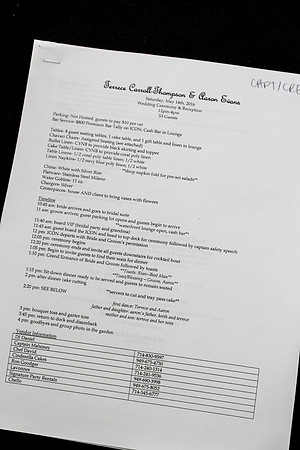 CAPT/CRE
Terrece Carroll-Thompson & Aaron Evans
Saturday, May 14th, 2016
Wedding Ceremony & Reception
12pm-4pm
55 Guests
Parking- Not Hosted; guests to pay $10 per car
Bar Service- $800 Premium Bar Tally on ICON; Cash Bar in Lounge
Tables- 8 guest seating tables, 1 cake table, and 1 gift table and linen in lounge
Chavari Chairs- Assigned Seating (see attached)
Buffet Linen- CYNB to provide black skirting and topper
Cake Table/Linen- CYNB to provide coral poly linen
Table Linens- 1/2 coral poly table linen; 1/2 white
Linen Napkins- 1/2 navy blue poly linen; 1/2 white
**drop napkin fold for pre-set salads**
China- White with Silver Rim
Flatware- Stainless Steel Milano
Water Goblets- 11 oz
Chargers- Silver
Centerpieces- house AND client to bring vases with flowers
Timeline
10:45 am: bride arrives and goes to bridal suite
11 am: groom arrives; guest parking lot opens and guests begin to arrive
**waterfront lounge open, cash bar**
11:40 am: board VIP (bridal party and grandma)
11:45 am: guests board the ICON and head to top deck for ceremony followed by captain safety speech
12 pm: ICON departs with Bride and Groom's permission
12:05 pm: ceremony begins
12:20 pm: ceremony ends and invite all guests downstairs for cocktail hour
1:05 pm: Begin to invite guests to find their seats for dinner
1:10 pm: Grand Entrance of Bride and Groom followed by toasts
**Toasts: Rian~Best Man**
**Toast/Blessing ~ Groom, Aaron**
1:15 pm: Sit down dinner ready to be served and guests to remain seated
2 pm: after dinner cake cutting
**servers to cut and tray pass cake**
2:20 pm: SEE BELOW
first dance: Terrece and Aaron
father and daughter: aaron's father, keith and terrece
mother and son: terrece and her sons
3 pm: bouquet toss and garter toss
3:45 pm: return to dock and disembark
4 pm: goodbyes and group photo in the garden
Vendor Information
DJ Daniel 714-930-9597
Captain Mahoney 949-675-4730
Chef David 714-240-1314
Cinderella Cakes